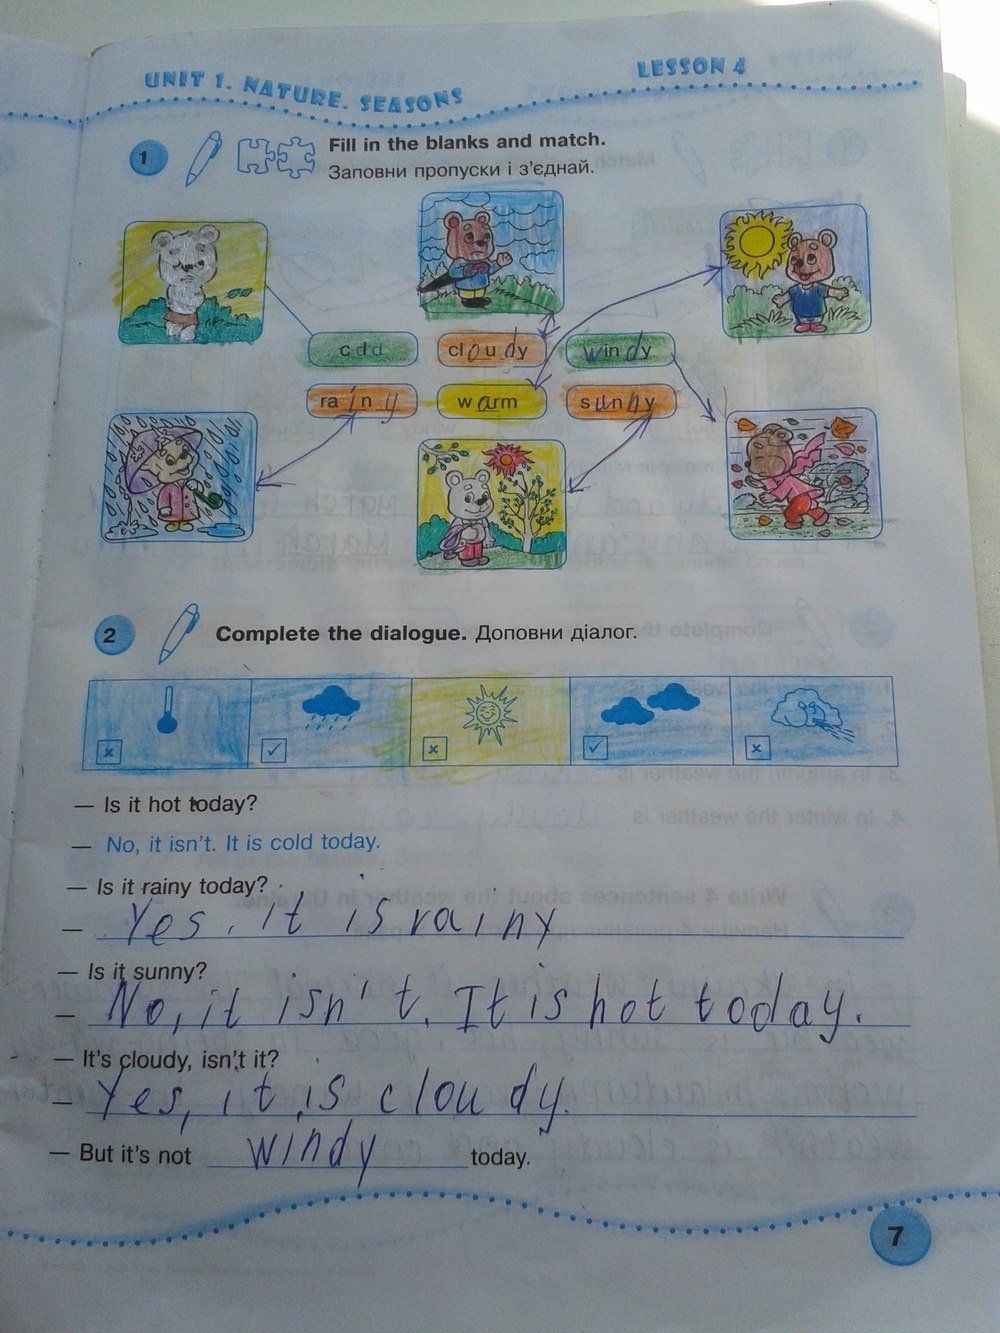 UNIT 1. NATURE. SEASONS
LESSON 4
1
Fill in the blanks and match.
Заповни пропуски і з'єднай.
cdd
cloudy
windy
rainy
warm
sunny
2
Complete the dialogue. Доповни діалог.
— Is it hot today?
— No, it isn't. It is cold today.
— Is it rainy today?
— Yes, it is rainy
— Is it sunny?
— No, it isn't. It is hot today.
— It's cloudy, isn't it?
— Yes, it is cloudy.
— But it's not windy today.
7